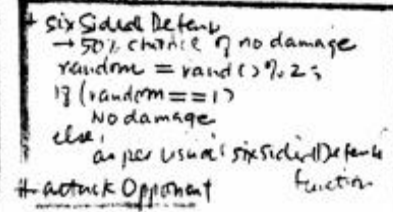 + sixSidedDefense
→ 50% chance of no damage
random = rand()%2;
if (random==1)
No damage
else,
as per usual sixSidedDefense
function
+ attack Opponent